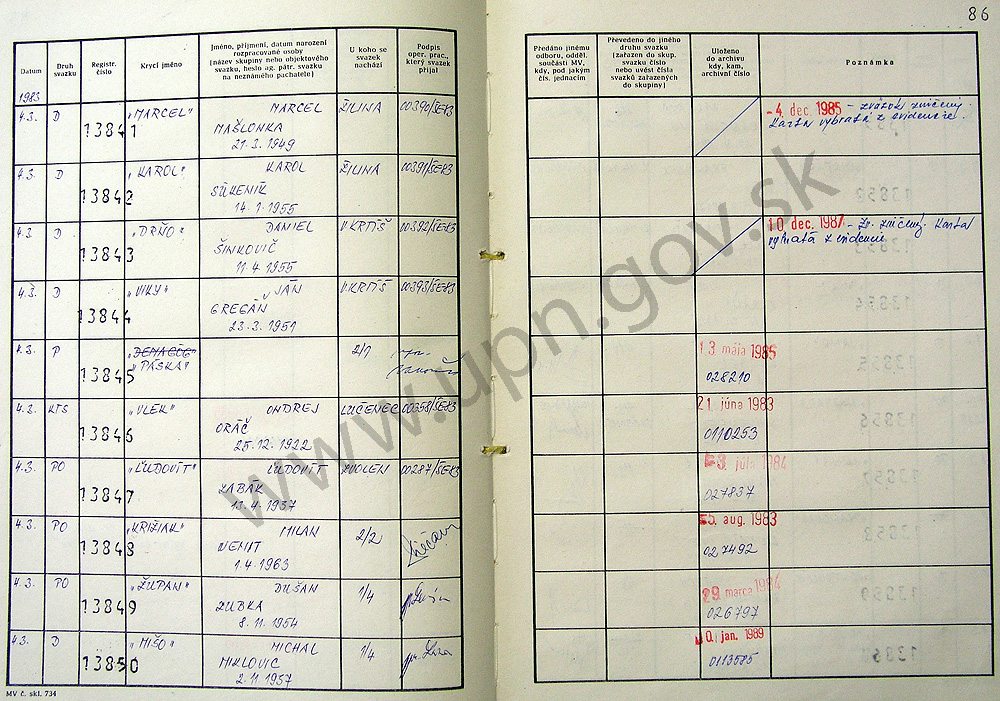 86
Datum
Druh svazku
Registr. číslo
Krycí jméno
Jméno, příjmení, datum narození
rozpracované osoby
(název skupiny nebo objektového
svazku, heslo ag. pátr. svazku
na neznámého pachatele)
U koho se
svazek
nachází
Podpis
oper. prac.,
který svazek
přijal
Předáno jinému
odboru, odděl.
součásti MV,
kdy, pod jakým
čís. jednacím
Převedeno do jiného
druhu svazku
(zařazen do skup.
svazku číslo
nebo uvést čísla
svazků zařazených
do skupiny)
Uloženo
do archivu
kdy, kam,
archivní číslo
Poznámka
1983
4.3. D 13841 "MARCEL" MARCEL ŽILINA 00390/SEK3
MAŠLONKA
21.3.1949
- 4. dec. 1985 - zväzok zničený.
Karta vybratá z evidencie.
4.3. D 13842 "KAROL" KAROL ŽILINA 00391/SEK3
SÚKENÍK
14.1.1955
4.3. D 13843 "DRŇO" DANIEL V.KRTÍŠ 00392/SEK3
ŠINKOVIČ
11.4.1955
10. dec. 1987 - Zv. zničený. Karta
vybratá z evidencie
4.3. D 13844 "VIKY" JÁN V.KRTÍŠ 00393/SEK3
GREGÁŇ
23.3.1951
4.3. P 13845 "DEMAGÓG" 2/1
"PÁSKA"
13. mája 1985
028210
4.3. KTS 13846 "VLEK" ONDREJ LUČENEC 00358/SEK3
ORÁČ
25.12.1922
21. júna 1983
0110253
4.3. PO 13847 "ĽUDOVÍT" ĽUDOVÍT ZVOLEN 00287/SEK3
LABÁK
13.4.1937
3. júla 1984
027837
4.3. PO 13848 "KRIŽIAK" MILAN 2/2
NEMIT
1.4.1963
5. aug. 1983
027492
4.3. PO 13849 "ŽUPAN" DUŠAN 1/4
ĽUBKA
8.11.1954
29. marca 1984
026797
4.3. D 13850 "MIŠO" MICHAL 1/4
MIKLOVIC
2.11.1957
10. jan. 1989
0113585
MV č. skl. 734
www.upn.gov.sk